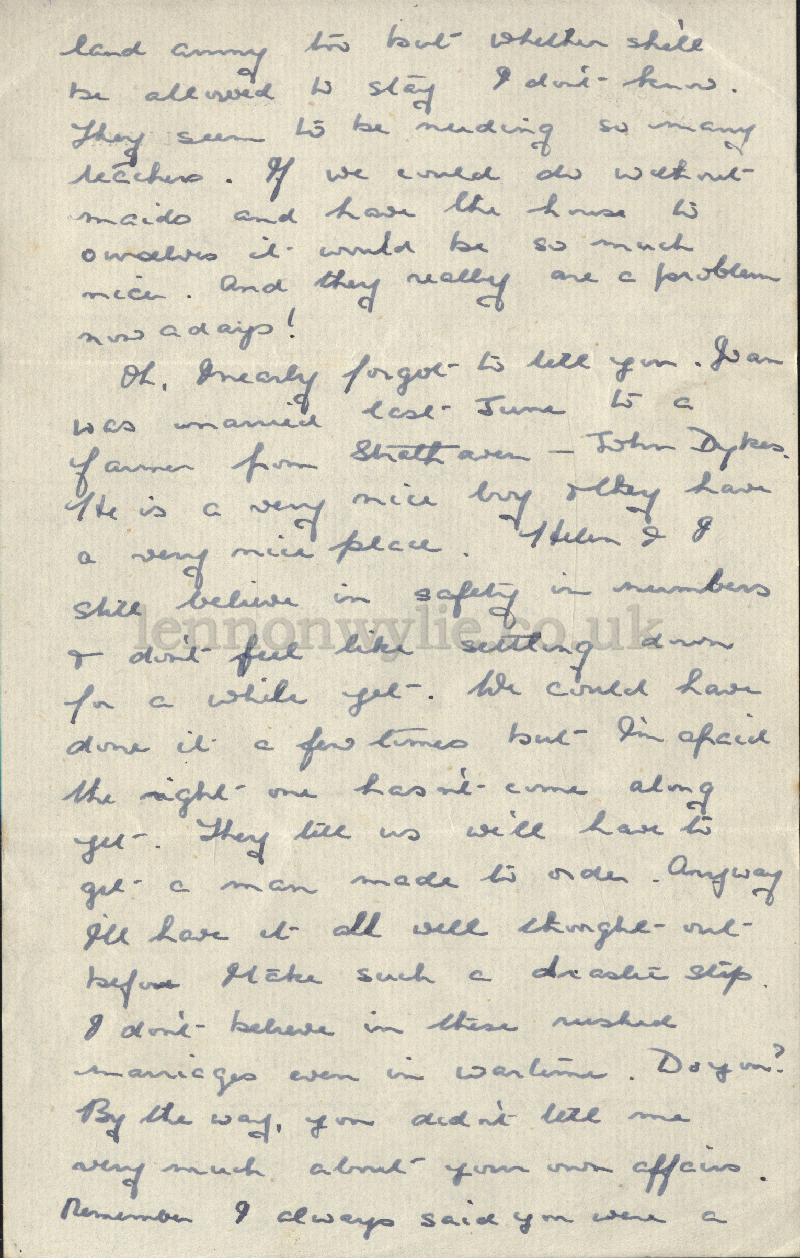 land army too but whether she'll
be allowed to stay I don't know.
They seem to be needing so many
teachers. If we could do without
maids and have the house to
ourselves it would be so much
nicer. And they really are a problem
nowadays!
Oh, I nearly forgot to tell you. Joan
was married last June to a
farmer from Strathaven – John Dykes.
He is a very nice boy & they have
a very nice place. Helen & I
still believe in safety in numbers
lennonwylie.co.uk
& don't feel like settling down
for a while yet. We could have
done it a few times but I'm afraid
the right one hasn't come along
yet. They tell us we'll have to
get a man made to order. Anyway
I'll have it all well thought out
before I take such a drastic step.
I don't believe in these rushed
marriages even in wartime. Do you?
By the way, you didn't tell me
very much about your own affairs.
Remember I always said you were a